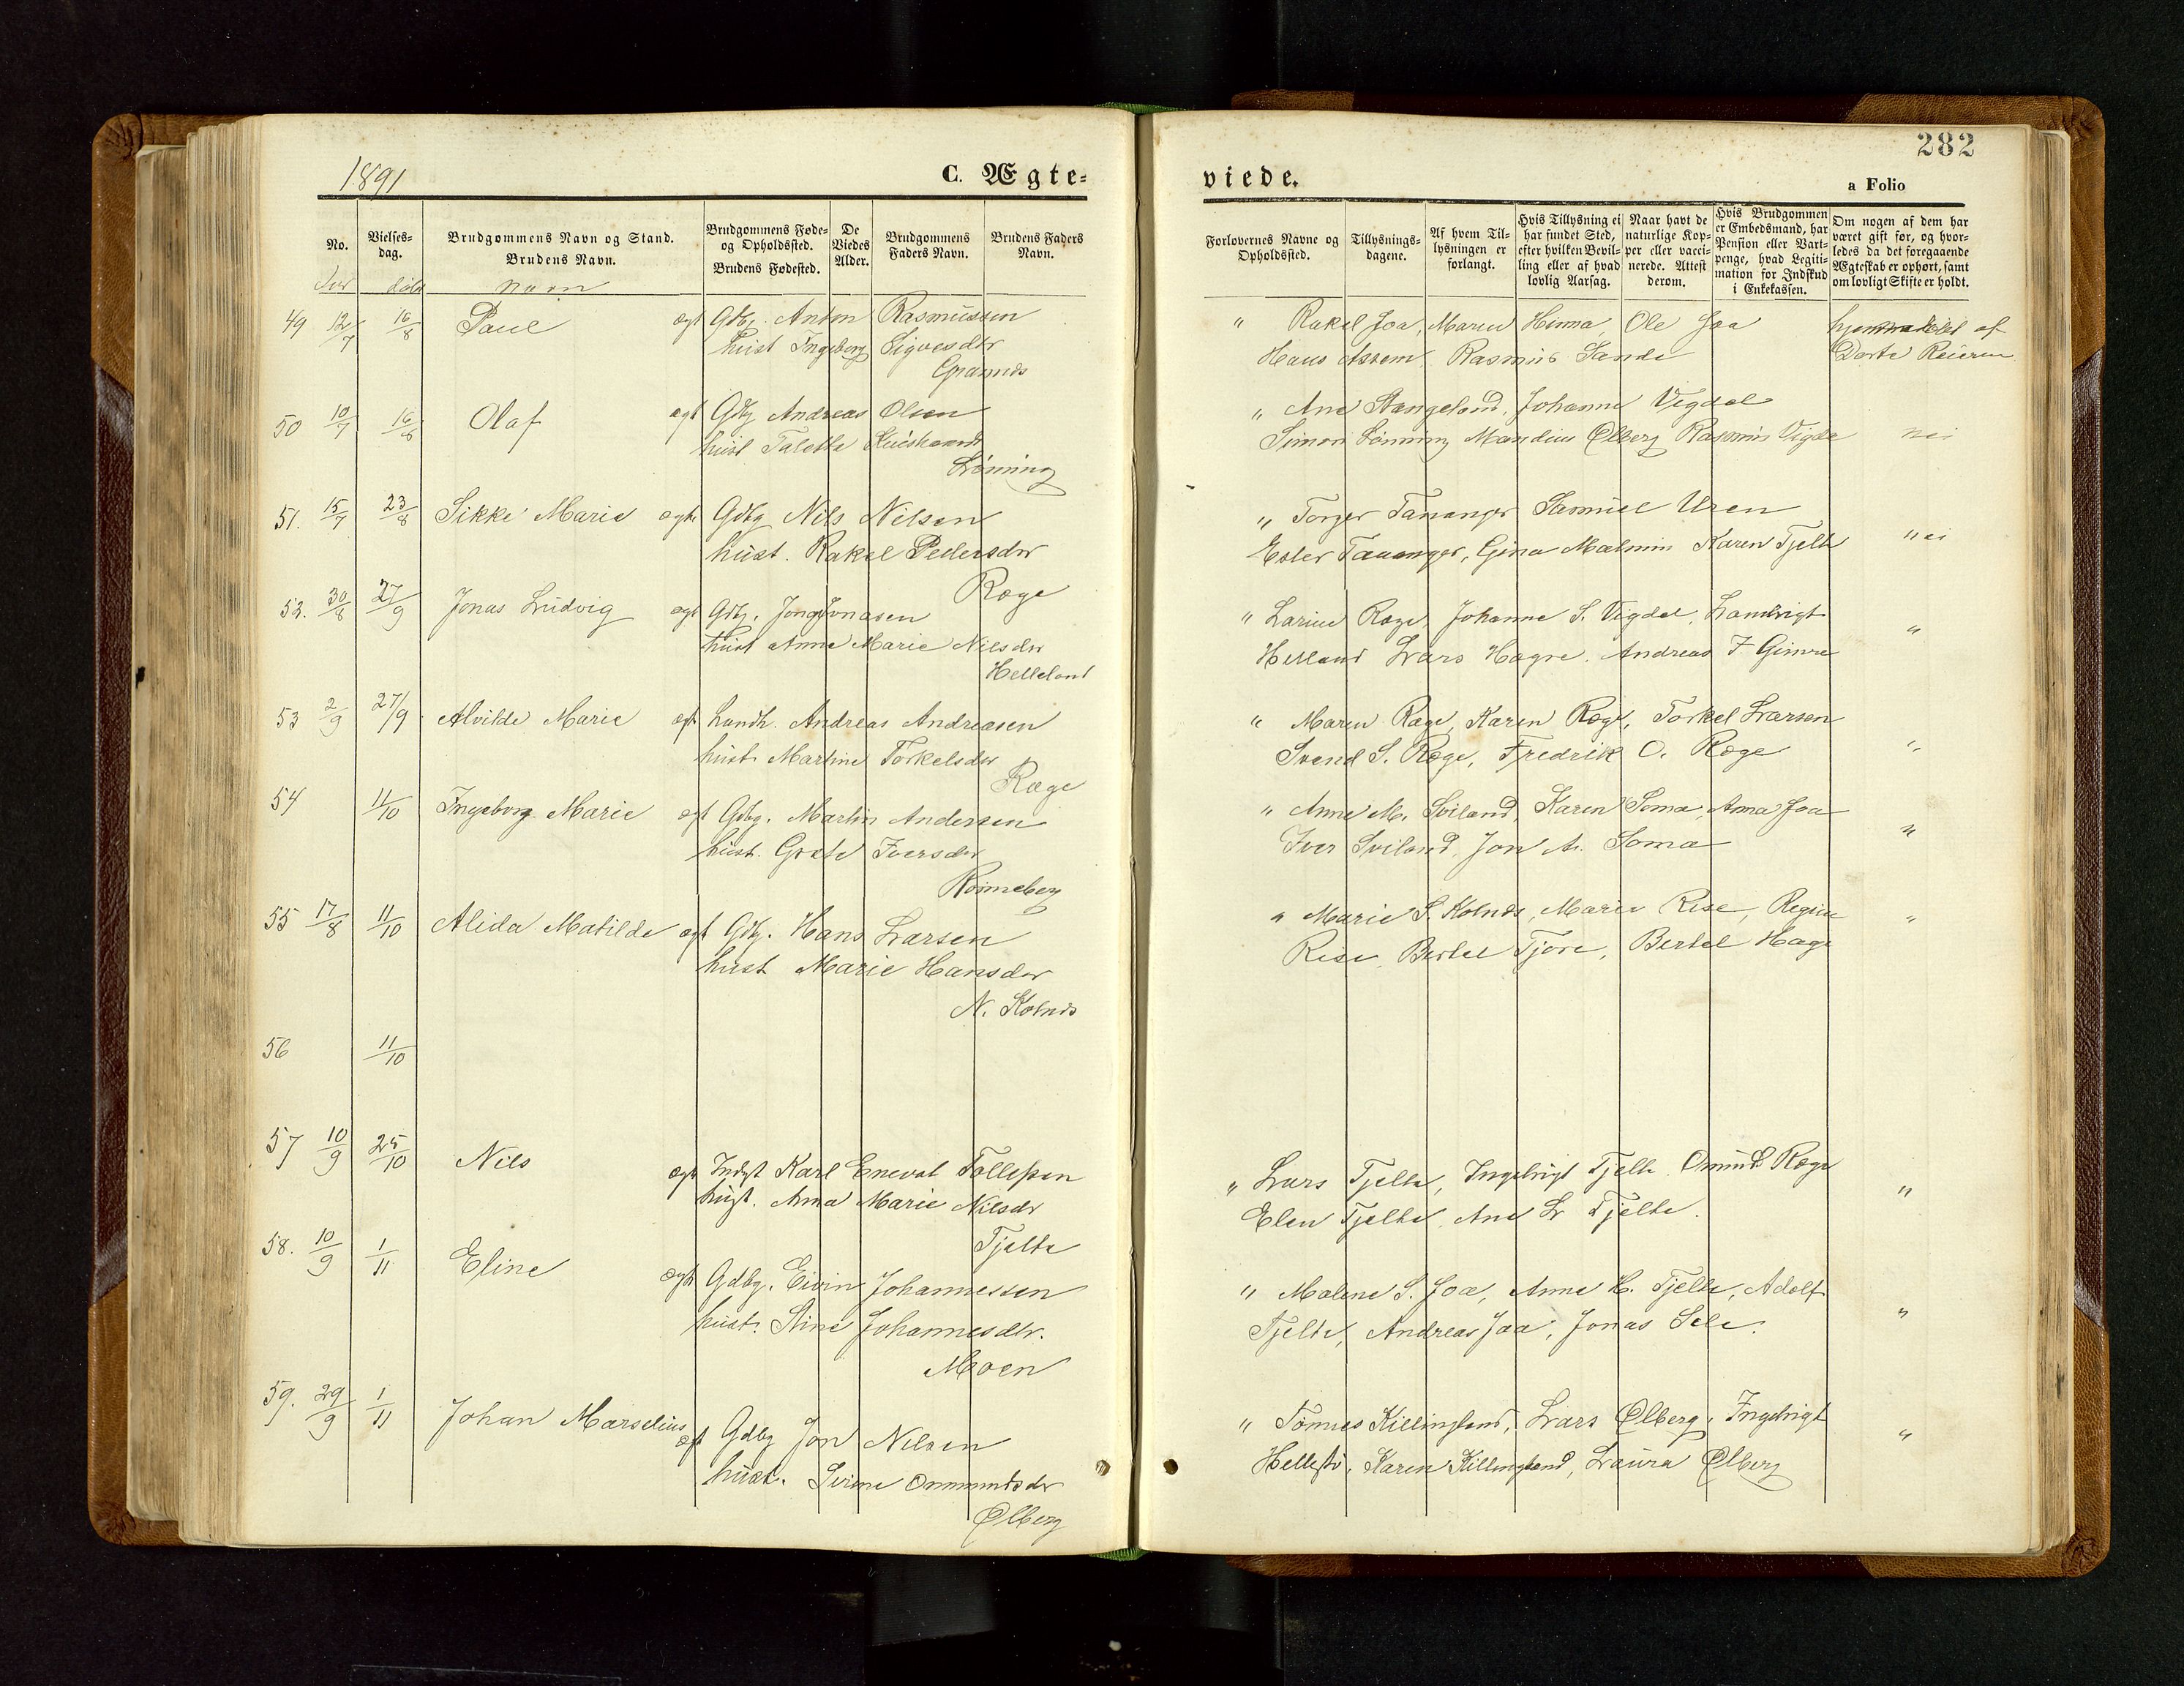 1891
C. Ægte-
No.
Vielses-
dag.
Brudgommens Navn og Stand.
Brudens Navn.
Brudgommens Føde-
og Opholdssted.
Brudens Fødested.
De
Viedes
Alder.
Brudgommens
Faders Navn.
Brudens Faders
Navn.
døbt navn
49 12/7 16/8 Paul ægt Gdbg. Anton Rasmussen
hust Ingeborg Sigvesdtr
50 10/7 16/8 Olaf ægt Gdbg Andreas Olsen
hust Talette
Lønning
51. 15/7 23/8 Sikke Marie ægte Gdbg Nils Nilsen
hust. Rakel Pedersdtr
Ræge
52. 30/8 27/9 Jonas Ludvig ægt Gdbg. Jonas Jonasen
hust Anne Marie Nilsdtr
Helleland
53 2/9 27/9 Alvilde Marie ægt Landh. Andreas Andreasen
hust. Martine Torkelsdtr
Ræge
54 11/10 Ingeborg Marie ægt Gdbg. Martin Andersen
hust. Grete Iversdtr
55 17/8 11/10 Alida Matilde ægt Gdbg. Hans Larsen
hust Marie Hansdtr
N. Kolnes
56 11/10
57 10/9 25/10 Nils ægte Indst Karl Enevat Tollefsen
hust. Anna Marie Nilsdtr
Tjelta
58. 10/9 1/11 Eline ægte Gdbg. Eivin Johannessen
hust. Stine Johannesdtr.
Moen
59. 29/9 1/11 Johan Marselius ægt Gdbg Jon Nilsen
hust. Ommundsdtr
Ølberg
282
viede.
a Folio
Forlovernes Navne og
Opholdssted.
Tillysnings-
dagene.
Af hvem Til-
lysningen er
forlangt.
Hvis Tillysning ei
har fundet Sted,
efter hvilken Bevil-
ling eller af hvad
lovlig Aarsag.
Naar havt de
naturlige Kop-
per eller vacci-
nerede. Attest
derom.
Hvis Brudgommen
er Embedsmand, har
Pension eller Vart-
penge, hvad Legiti-
mation for Indskud
i Enkekassen.
Om nogen af dem har
været gift før, og hvor-
ledes da det foregaaende
Ægteskab er ophørt, samt
om lovligt Skifte er holdt.
" Rakel Joa, Maren Hinna, Ole Joa hjemmedøbt af
Hans Assem, Rasmus Sande Dorte Reiersen
" Ane Stangeland, Johanne Vigdal
Simon Lønning Mandius Ølberg Rasmus Vigdel nei
" Torger Tananger Samuel Uren
Ester Tananger, Gina Malmin Karen Tjelte nei
" Larine Ræge, Johanne S. Vigdel, Lambrigt
Helland Lars Hagre. Andreas F Gimre "
" Maren Ræge, Karen Ræge, Torkel Larsen
Svend S. Ræge, Fredrik O. Ræge "
" Anne M. Sviland, Karen Soma, Anna Joa
Iver Sviland, Jon A. Soma "
" Marie S. Kolnes, Marie Rise, Regine "
Rise, Bertel Tjore, Bertel Haga
" Lars Tjelta, Ingebrigt Tjelta Omund Ræge
Elen Tjelta, Ane L. Tjelta. "
" Malene S. Joa, Anne H. Tjelta, Adolf
Tjelta, Andreas Joa, Jonas Sele. "
" Tønnes Killingland, Lars Ølberg, Ingebrigt
Hellestø, Karen Killingland, Laura Ølberg "